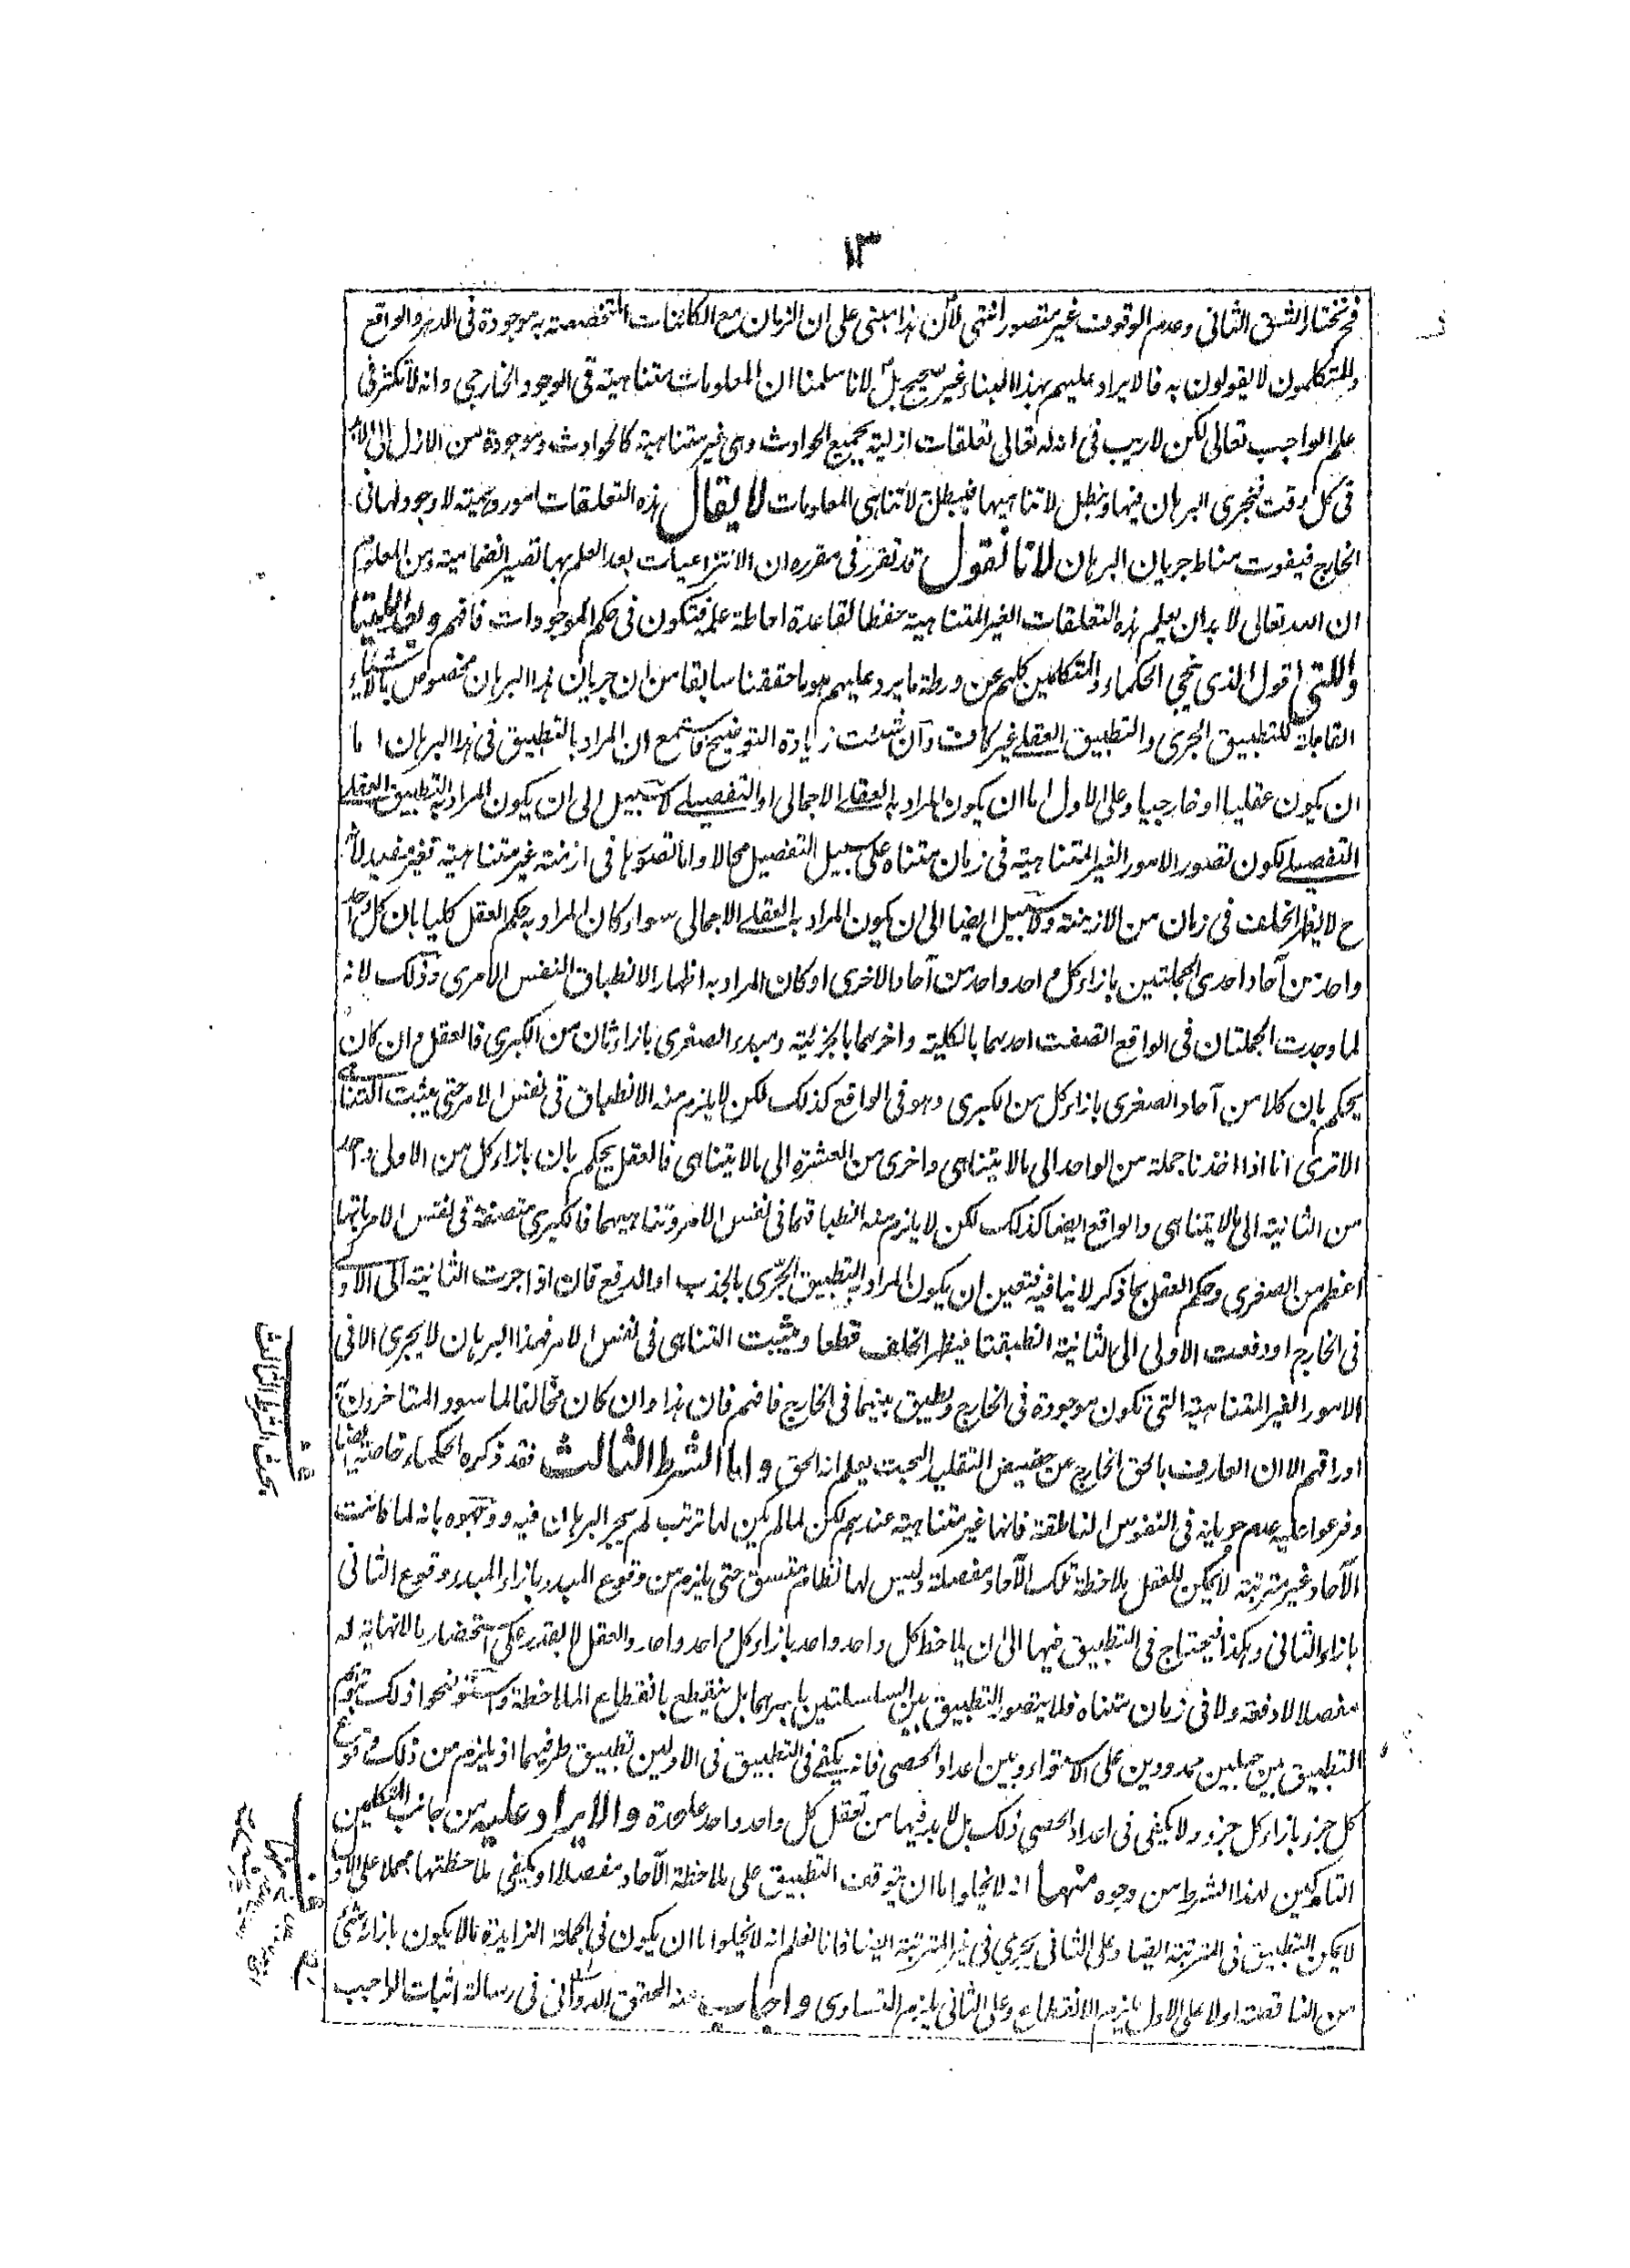 ١٣
فح نختار الشق الثانى وعدم الوقوف غير متصور انتهى لان هذا مبنى على ان الزمان مع الكائنات المتخصصة به موجودة فى الدهر والواقع
والمتكلمون لا يقولون به فالايراد عليهم بهذا البناء غير صحيح بل لانا سلمنا ان المعلومات متناهية فى الوجود الخارجى وانه لا تكثر فى
علم الواجب تعالى لكن لا ريب فى ان له تعالى تعلقات ازلية بجميع الحوادث وهى غير متناهية كالحوادث وموجودة من الازل الى الابد
فى كل وقت فيجرى البرهان فيها ويبطل لا تناهيها فيبطل لا تناهى المعلومات لا يقال هذه التعلقات امور وهمية لا وجود لها فى
الخارج فيفوت مناط جريان البرهان لانا نقول قد تقرر فى مقره ان الانتزاعيات بعد العلم بها تصير انضمامية ومن المعلوم
ان الله تعالى لا بد ان يعلم هذه التعلقات الغير المتناهية حفظا لقاعدة احاطة علمه فتكون فى حكم الموجودات فافهم وبعد اللتيا
واللتى اقول الذى ينجى الحكماء والمتكلمين كلهم عن ورطة ما يرد عليهم هو ما حققنا سابقا من ان جريان هذا البرهان مخصوص بالاشياء
القابلة للتطبيق الجرى والتطبيق العقلے غير كاف وان شئت زيادة التوضيح فاستمع ان المراد بالتطبيق فى هذا البرهان اما
ان يكون عقليا او خارجيا وعلى الاول اما ان يكون المراد به العقلے الاجمالى او التفصيلے لا سبيل الى ان يكون المراد به التطبيق العقلے
التفصيلے لكون تصور الامور الغير المتناهية فى زمان متناه على سبيل التفصيل محالا واما تصورها فى ازمنة غير متناهية فغير مفيد لانه
ح لا يظهر الخلف فى زمان من الازمنة ولا سبيل ايضا الى ان يكون المراد به العقلے الاجمالى سواء كان المراد به حكم العقل كليا بان كل واحد
واحد من آحاد احدى الجملتين بازاء كل واحد واحد من آحاد الاخرى او كان المراد به اظهار الانطباق النفس الامرى وذلك لانه
لما وجدت الجملتان فى الواقع اتصفت احدهما بالكلية واخرهما بالجزئية ومبدء الصغرى بازاء ثان من الكبرى فالعقل وان كان
يحكم بان كلا من آحاد الصغرى بازاء كل من الكبرى وهو فى الواقع كذلك لكن لا يلزم منه الانطباق فى نفس الامر حتى يثبت التناهى
الا ترى انا اذا اخذنا جملة من الواحد الى ما لا يتناهى واخرى من العشرة الى ما لا يتناهى فالعقل يحكم بان بازاء كل من الاولى واحد
من الثانية الى ما لا يتناهى والواقع ايضا كذلك لكن لا يلزم منه انطباقهما فى نفس الامر وتناهيهما فالكبرى متصفة فى نفس الامر بانها
اعظم من الصغرى وحكم العقل بما ذكر لا ينافيه فتعين ان يكون المراد به التطبيق الجرّى بالجذب او الدفع فان اذا جرت الثانية الى الاولى
فى الخارج او دفعت الاولى الى الثانية انطبقتا فيظهر الخلف قطعا ويثبت التناهى فى نفس الامر فهذا البرهان لا يجرى الا فى
الامور الغير المتناهية التى تكون موجودة فى الخارج وتطبيق بينهما فى الخارج فافهم فان هذا وان كان مخالفا لما سود المتاخرون به
اوراقهم الا ان العارف بالحق الخارج عن حضيض التقليد البحت يعلم انه الحق واما الشرط الثالث فقد ذكره الحكماء خاصة ايضا
وفرعوا عليه عدم جريانه فى النفوس الناطقة فانها غير متناهية عندهم لكن لما لم يكن لها ترتب لم يجر البرهان فيه ووجهوه بانه لما كانت
الآحاد غير مترتبة لا يمكن للعقل ملاحظة تلك الآحاد مفصلة وليس لها نظام متسق حتى يلزم من وقوع المبدء بازاء المبدء وقوع الثانى
بازاء الثانى وهكذا فيحتاج فى التطبيق فيها الى ان يلاحظ كل واحد واحد بازاء كل واحد واحد والعقل لا يقدر على استحضار ما لا نهاية له
مفصلا لا دفعة ولا فى زمان متناه فلا يتصور التطبيق بين السلسلتين باسرهما بل ينقطع بانقطاع الملاحظة واستوضحوا ذلك بتوهم
التطبيق بين حبلين ممدودين على الاستواء وبين اعداد الحصى فانه يكفے فى التطبيق فى الاولين تطبيق طرفيهما اذ يلزم من ذلك وقوع
كل جزء بازاء كل جزء ولا يكفى فى اعداد الحصى ذلك بل لا بد فيها من تعقل كل واحد واحد عليحدة والايراد عليه من جانب المتكلمين
التاركين لهذا الشرط من وجوه منها انه لا يخلو اما ان يتوقف التطبيق على ملاحظة الآحاد مفصلا او يكفى ملاحظتها مجملا على الاول
لا يمكن التطبيق فى المترتبة ايضا وعلى الثانى يجرى فى غير المترتبة ايضا فانا نعلم انه لا يخلو اما ان يكون فى الجملة الزايدة ما لا يكون بازائه شئ
من الناقصة اولا على الاول يلزم الانقطاع وعلى الثانى يلزم التساوى واجاب عنه المحقق الدوانى فى رسالة اثبات الواجب
بحث الشرط الثالث